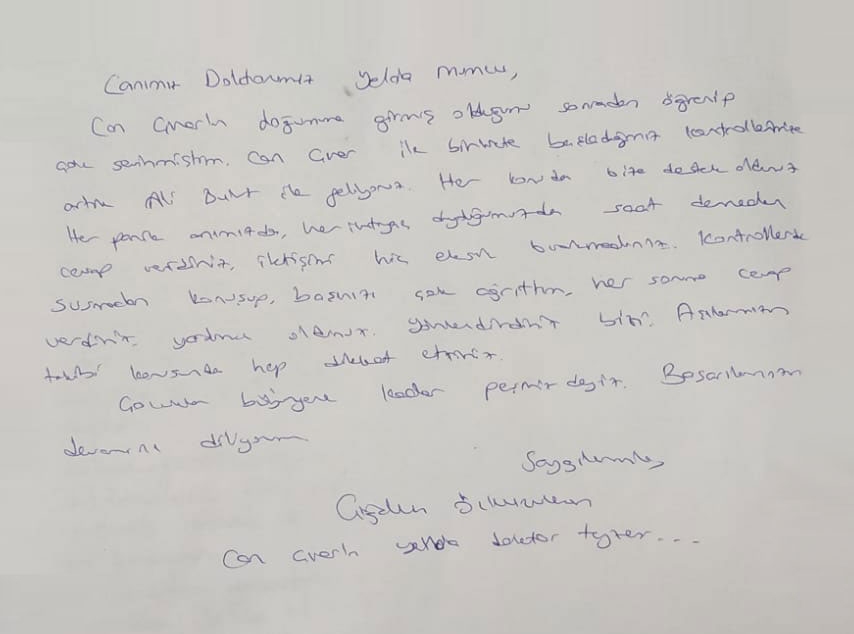 Canımız Doktorumuz Yelda Mumcu,
Can Güner'in doğumuna girmiş olduğunu sonradan öğrenip
çok sevinmiştim. Can Güner ile birlikte başladığımız kontrollerimize
artık Ali Bulut ile geliyoruz. Her konuda bize destek oldunuz
Her panik anımızda, her ihtiyaç duyduğumuzda saat demeden
cevap verdiniz, iletişimi hiç eksik bırakmadınız. Kontrollerde
susmadan konuşup, başınızı çok ağrıttım, her soruma cevap
verdiniz yardımcı oldunuz. Yönlendirdiniz bizi. Aşılarımızın
takibi konusunda hep dikkat ettiniz.
Çocuklar büyüyene kadar peşinizdeyiz. Başarılarınızın
devamını diliyorum.
Saygılarımla
Çiğdem
Can Güner'in Yelda doktor teyzesi...